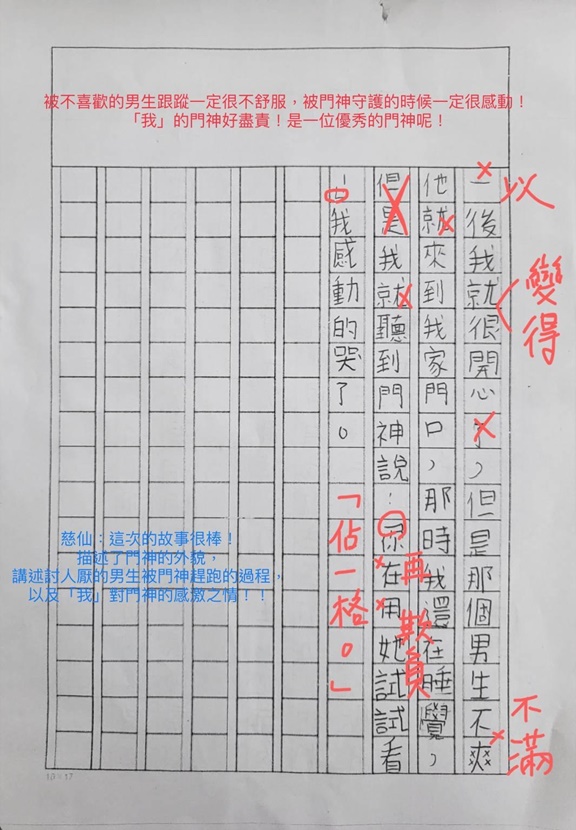 被不喜歡的男生跟蹤一定很不舒服，被門神守護的時候一定很感動！
「我」的門神好盡責！是一位優秀的門神呢！
以
變得
不滿
一後我就很開心了，但是那個男生不爽
他就來到我家門口，那時我還在睡覺，
再
欺負
但是我就聽到門神說：你在用她試試看
！我感動的哭了。
「佔一格。」
慈仙：這次的故事很棒！
描述了門神的外貌，
講述討人厭的男生被門神趕跑的過程，
以及「我」對門神的感激之情！！